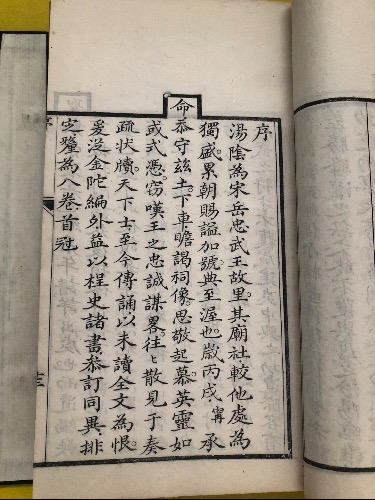 序
湯陰為宋岳忠武王故里。其廟社較他處為
獨盛。累朝賜謚加號。典至渥也。歲丙戌。甯承
命
恭守茲土。下車瞻謁祠像。思敬起慕。英靈如
或式憑。竊嘆王之忠誠謀畧。往々散見于奏
疏狀牘。天下士至今傳誦。以未讀全文為恨。
爰從金陀編外。益以桯史諸書。叅訂同異。排
定釐為八卷。首冠